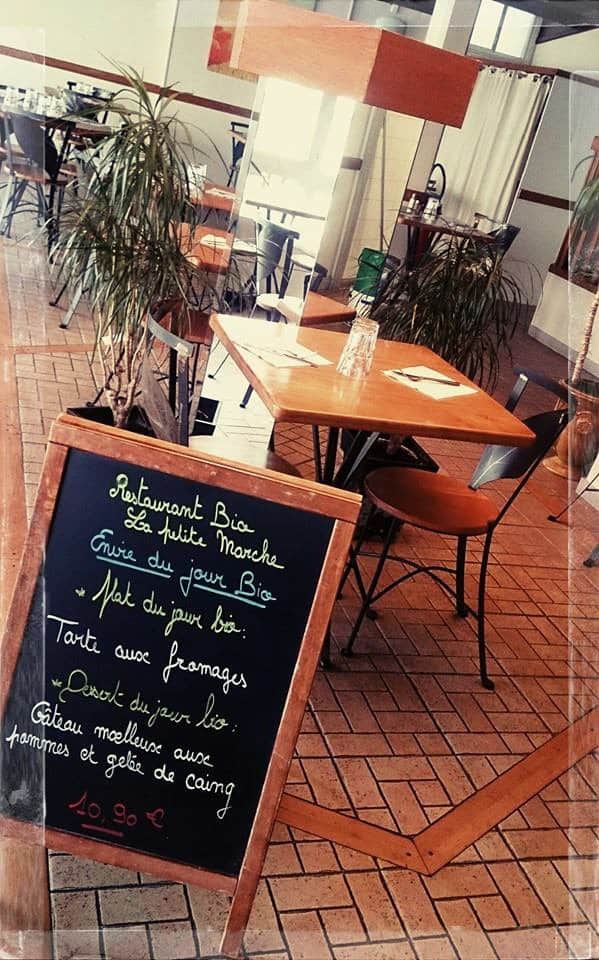 Restaurant Bio
La petite Marche
Envie du jour Bio
* Plat du jour bio:
Tarte aux fromages
* Dessert du jour bio:
Gâteau moelleux aux
pommes et gelée de caing
10,90 €